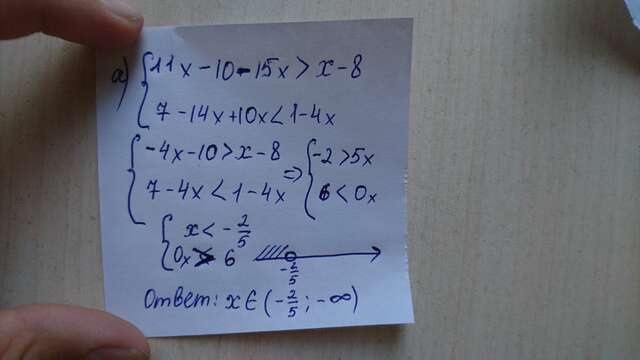 а) { 11x - 10 - 15x > x - 8
7 - 14x + 10x < 1 - 4x
{ -4x - 10 > x - 8 => { -2 > 5x
7 - 4x < 1 - 4x 6 < 0x
{ x < - 2/5
0x > 6
- 2/5
Ответ: x ∈ (- 2/5 ; -∞)